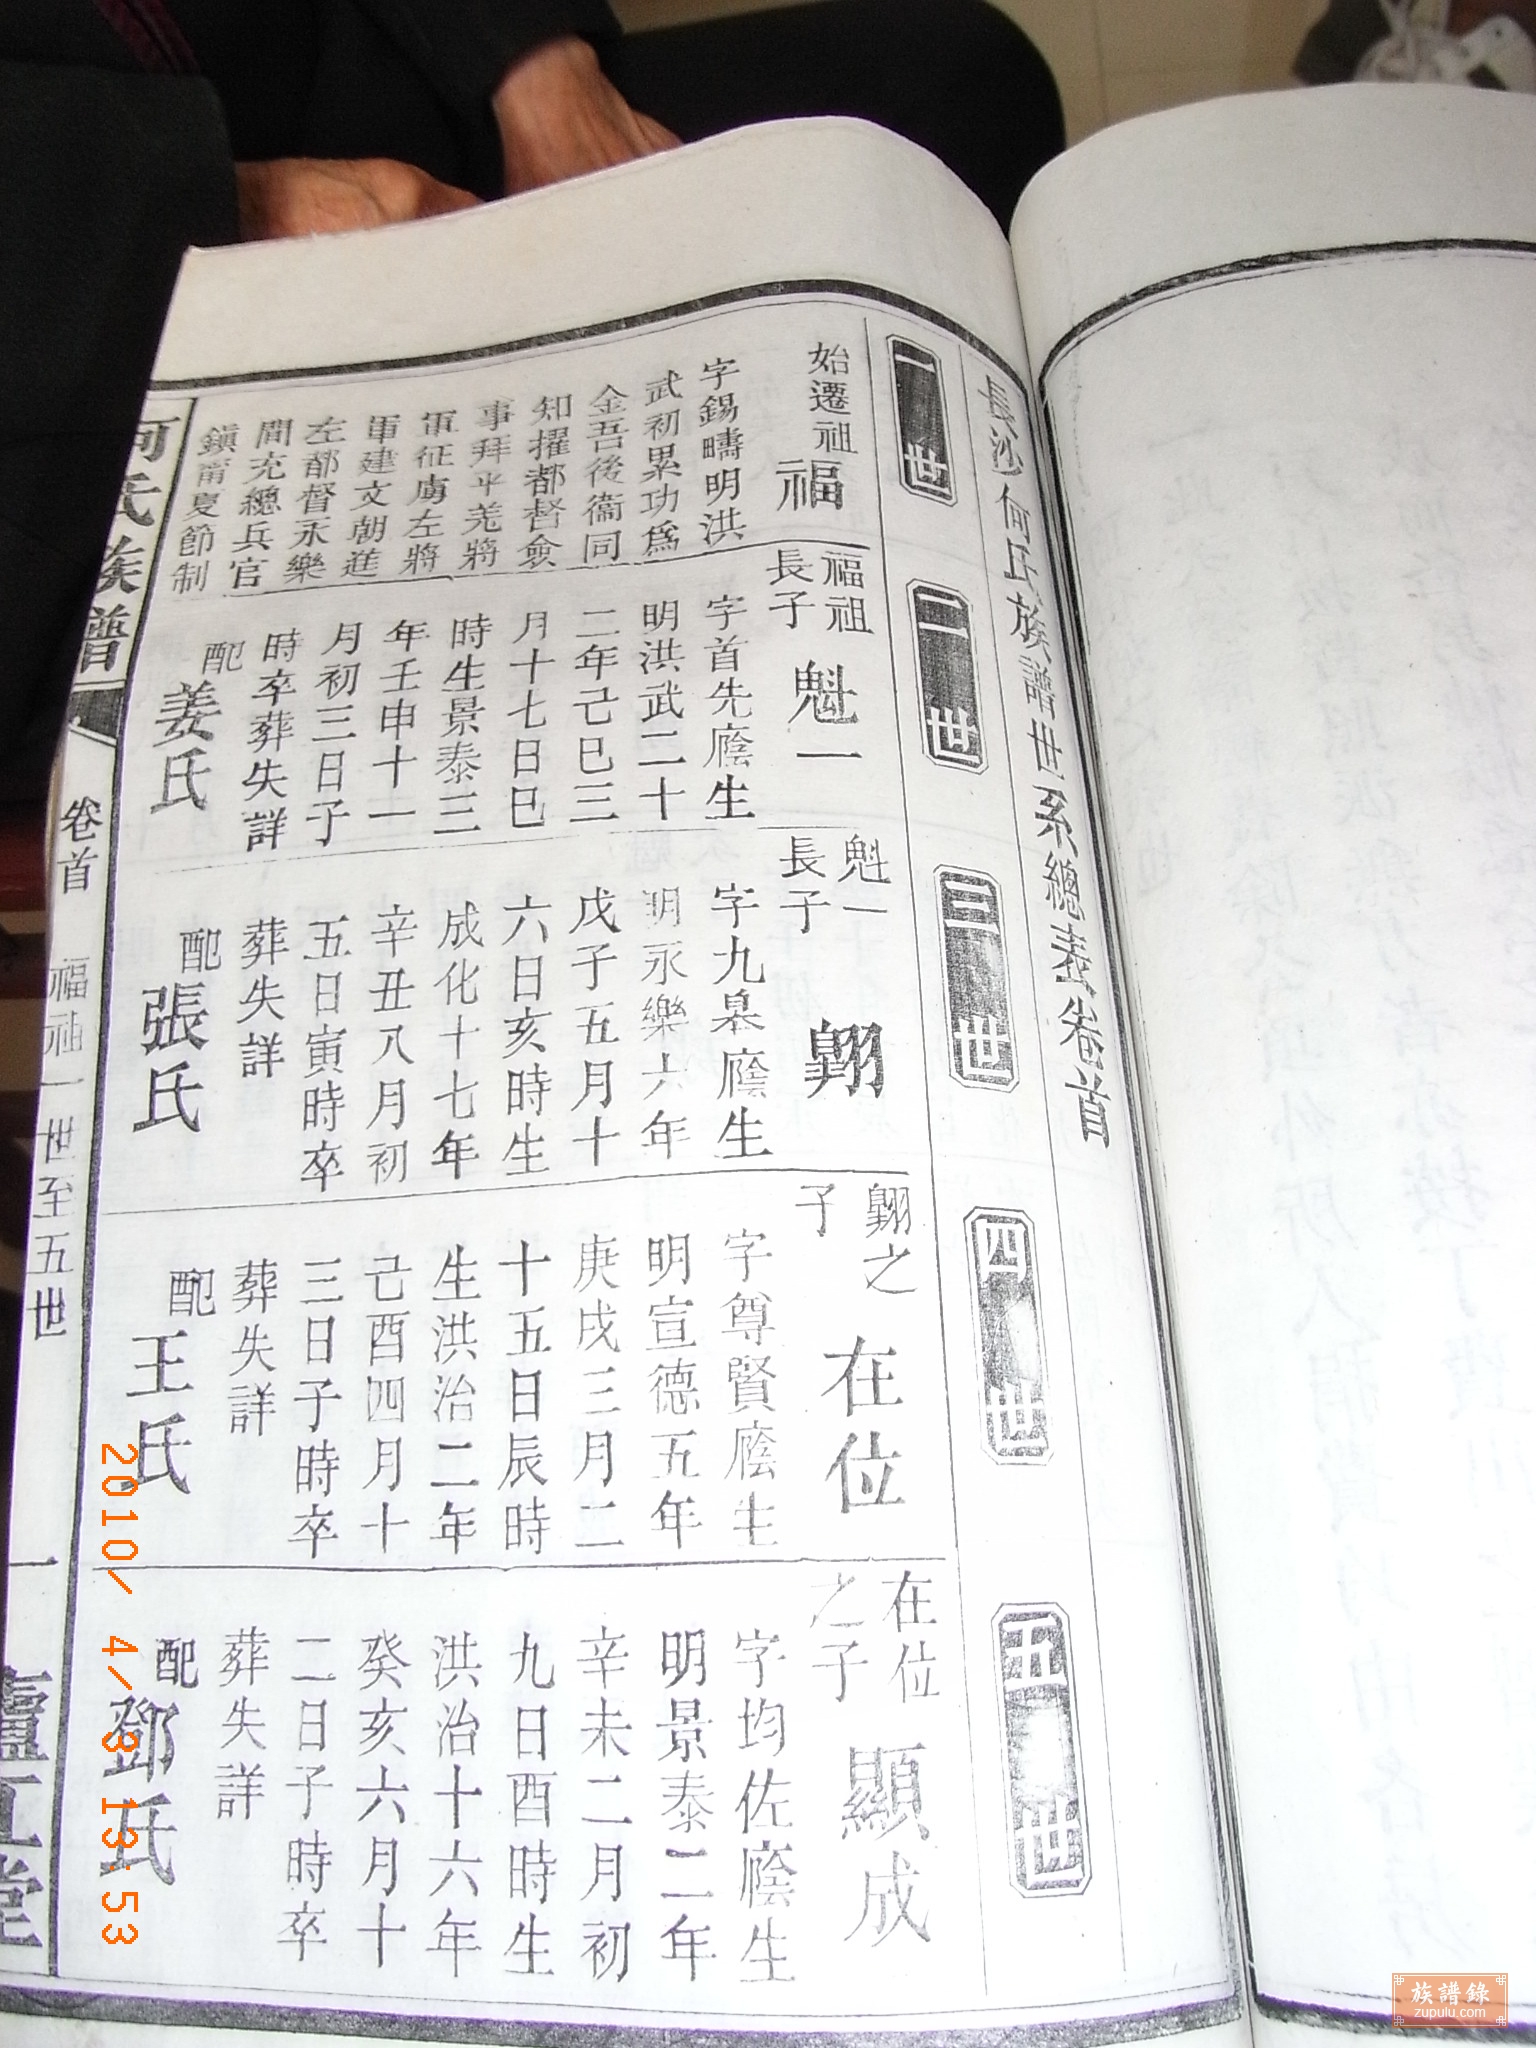 長沙何氏族譜世系總表卷首
一世
二世
三世
四世
五世
始遷祖
福
字錫疇明洪
武初累功爲
金吾後衞同
知擢都督僉
事拜平羌將
軍征虜左將
軍建文朝進
左都督永樂
間充總兵官
鎭甯夏節制
福祖
長子
魁一
字首先廕生
明洪武二十
二年己巳三
月十七日巳
時生景泰三
年壬申十一
月初三日子
時卒葬失詳
配
姜氏
魁一
長子
翺
字九臯廕生
明永樂六年
戊子五月十
六日亥時生
成化十七年
辛丑八月初
五日寅時卒
葬失詳
配
張氏
翺之
子
在位
字尊賢廕生
明宣德五年
庚戌三月二
十五日辰時
生洪治二年
己酉四月十
三日子時卒
葬失詳
配
王氏
在位
之子
顯成
字均佐廕生
明景泰二年
辛未二月初
九日酉時生
洪治十六年
癸亥六月十
二日子時卒
葬失詳
配
鄧氏
何氏族譜
卷首
福祖一世至五世
一
廬江堂
2010/ 4/ 3 13:53
族譜錄
zupulu.com